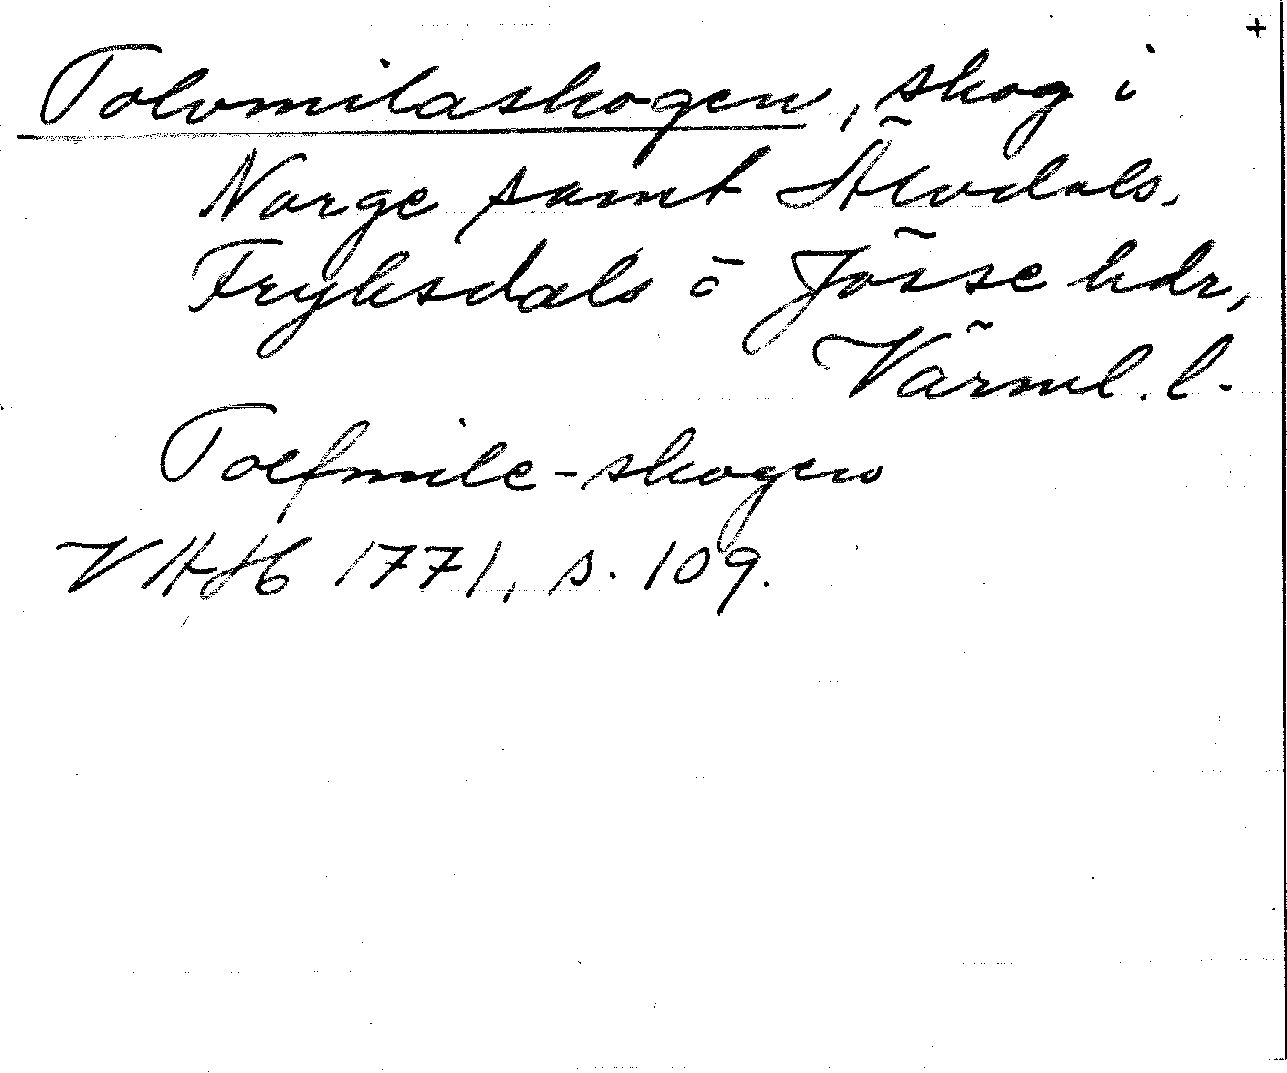 +
Tolvmilaskogen, skog i
Norge samt Älvdals,
Fryksdals o Jösse hdr,
Värml. l.
Tolfmile-skogen
VAH 1771, s. 109.